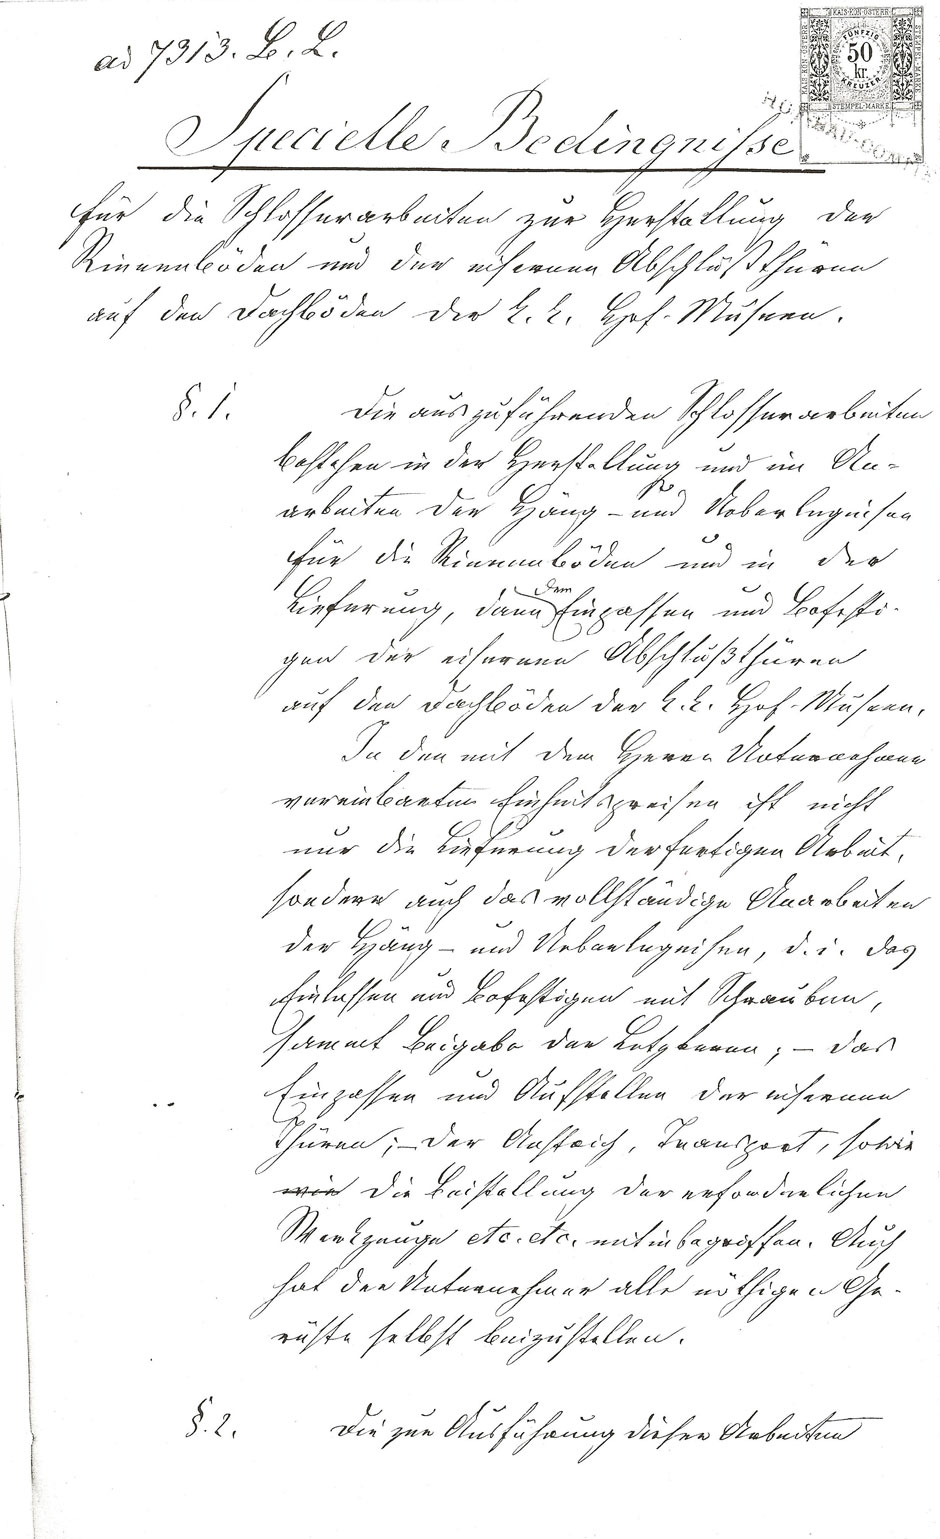 ad 7313. B. L.
KAIS·KÖN·ÖSTERR·
STEMPEL-MARKE
FÜNFZIG
50
kr.
KREUZER
STEMPEL-MARKE
HOFBAU-COMITE
Specielle Bedingnisse
für die Schlosserarbeiten zur Herstellung der
Rinnenböden und der eisernen Abschlußthüren
auf den Dachböden der k. k. Hof-Museen.
§. 1. Die auszuführenden Schlosserarbeiten
bestehen in der Herstellung und im An-
arbeiten der Häng- und Ueberlegeisen
für die Rinnenböden und in der
Lieferung, dann dem Einpassen und Befesti-
gen der eisernen Abschlußthüren
auf den Dachböden der k. k. Hof-Museen.
In den mit dem Herrn Unternehmer
vereinbarten Einheitspreisen ist nicht
nur die Lieferung der fertigen Arbeit,
sondern auch das vollständige Anarbeiten
der Häng- und Ueberlegeisen, d. i. das
Einlassen und Befestigen mit Schrauben,
sammt Beigabe der Letzteren; – das
Einpassen und Aufstellen der eisernen
Thüren; – der Anstrich, Transport, sowie
wie die Beistellung der erforderlichen
Werkzeuge etc. etc. mitinbegriffen. Auch
hat der Unternehmer alle nöthigen Ge-
rüste selbst beizustellen.
§. 2. Die zur Ausführung dieser Arbeiten